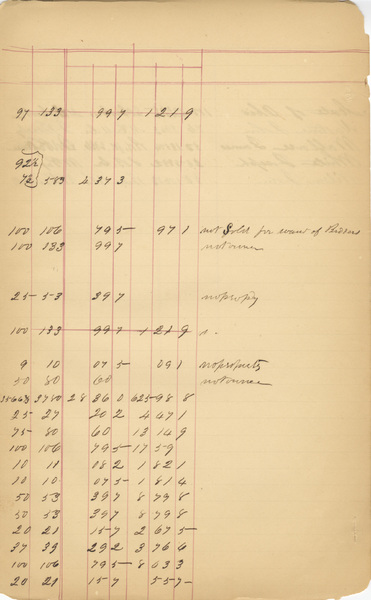 97 133 997 1219
92½
72 503 4 373
100 106 795 971 not Sold for want of Bidders
100 133 997 not owner
25 53 397 no property
100 133 997 1219
9 10 075 091 no property
50 80 60 not owner
3780 28 360 625 98 8
25 27 202 4 471
75 80 60 13 149
100 106 795 17 59
10 11 082 1 821
10 10 075 1 814
50 53 397 8 798
50 53 397 8 798
20 21 157 2 675
37 39 292 3 766
100 106 795 8 633
20 21 157 557